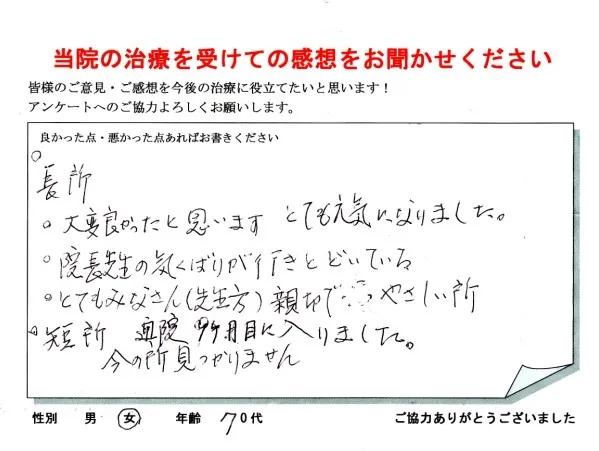 当院の治療を受けての感想をお聞かせください
皆様のご意見・ご感想を今後の治療に役立てたいと思います！
アンケートへのご協力よろしくお願いします。
良かった点・悪かった点あればお書きください
○
長所
○大変良かったと思います とても元気になりました。
○院長先生の気くばりが行きとどいている
○とてもみなさん（先生方）親切で やさしい所
○短所 通院 9ヶ月目に入りました。
今の所見つかりません
性別 男 女 年齢 70代 ご協力ありがとうございました